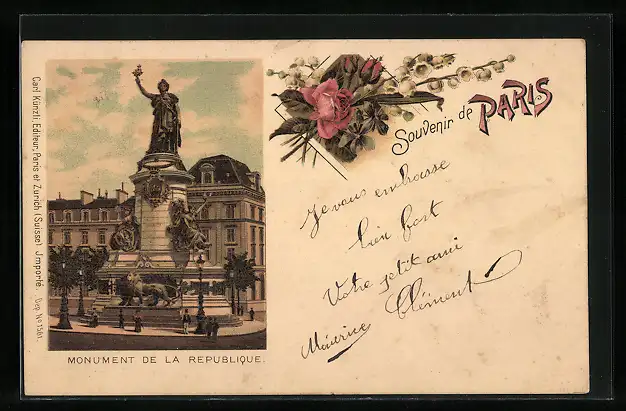 Carl Künzli, Editeur, Paris et Zurich (Suisse) Importé.
Souvenir de PARIS
Je vous embrasse
bien fort
Votre petit ami
Clément
MONUMENT DE LA REPUBLIQUE.